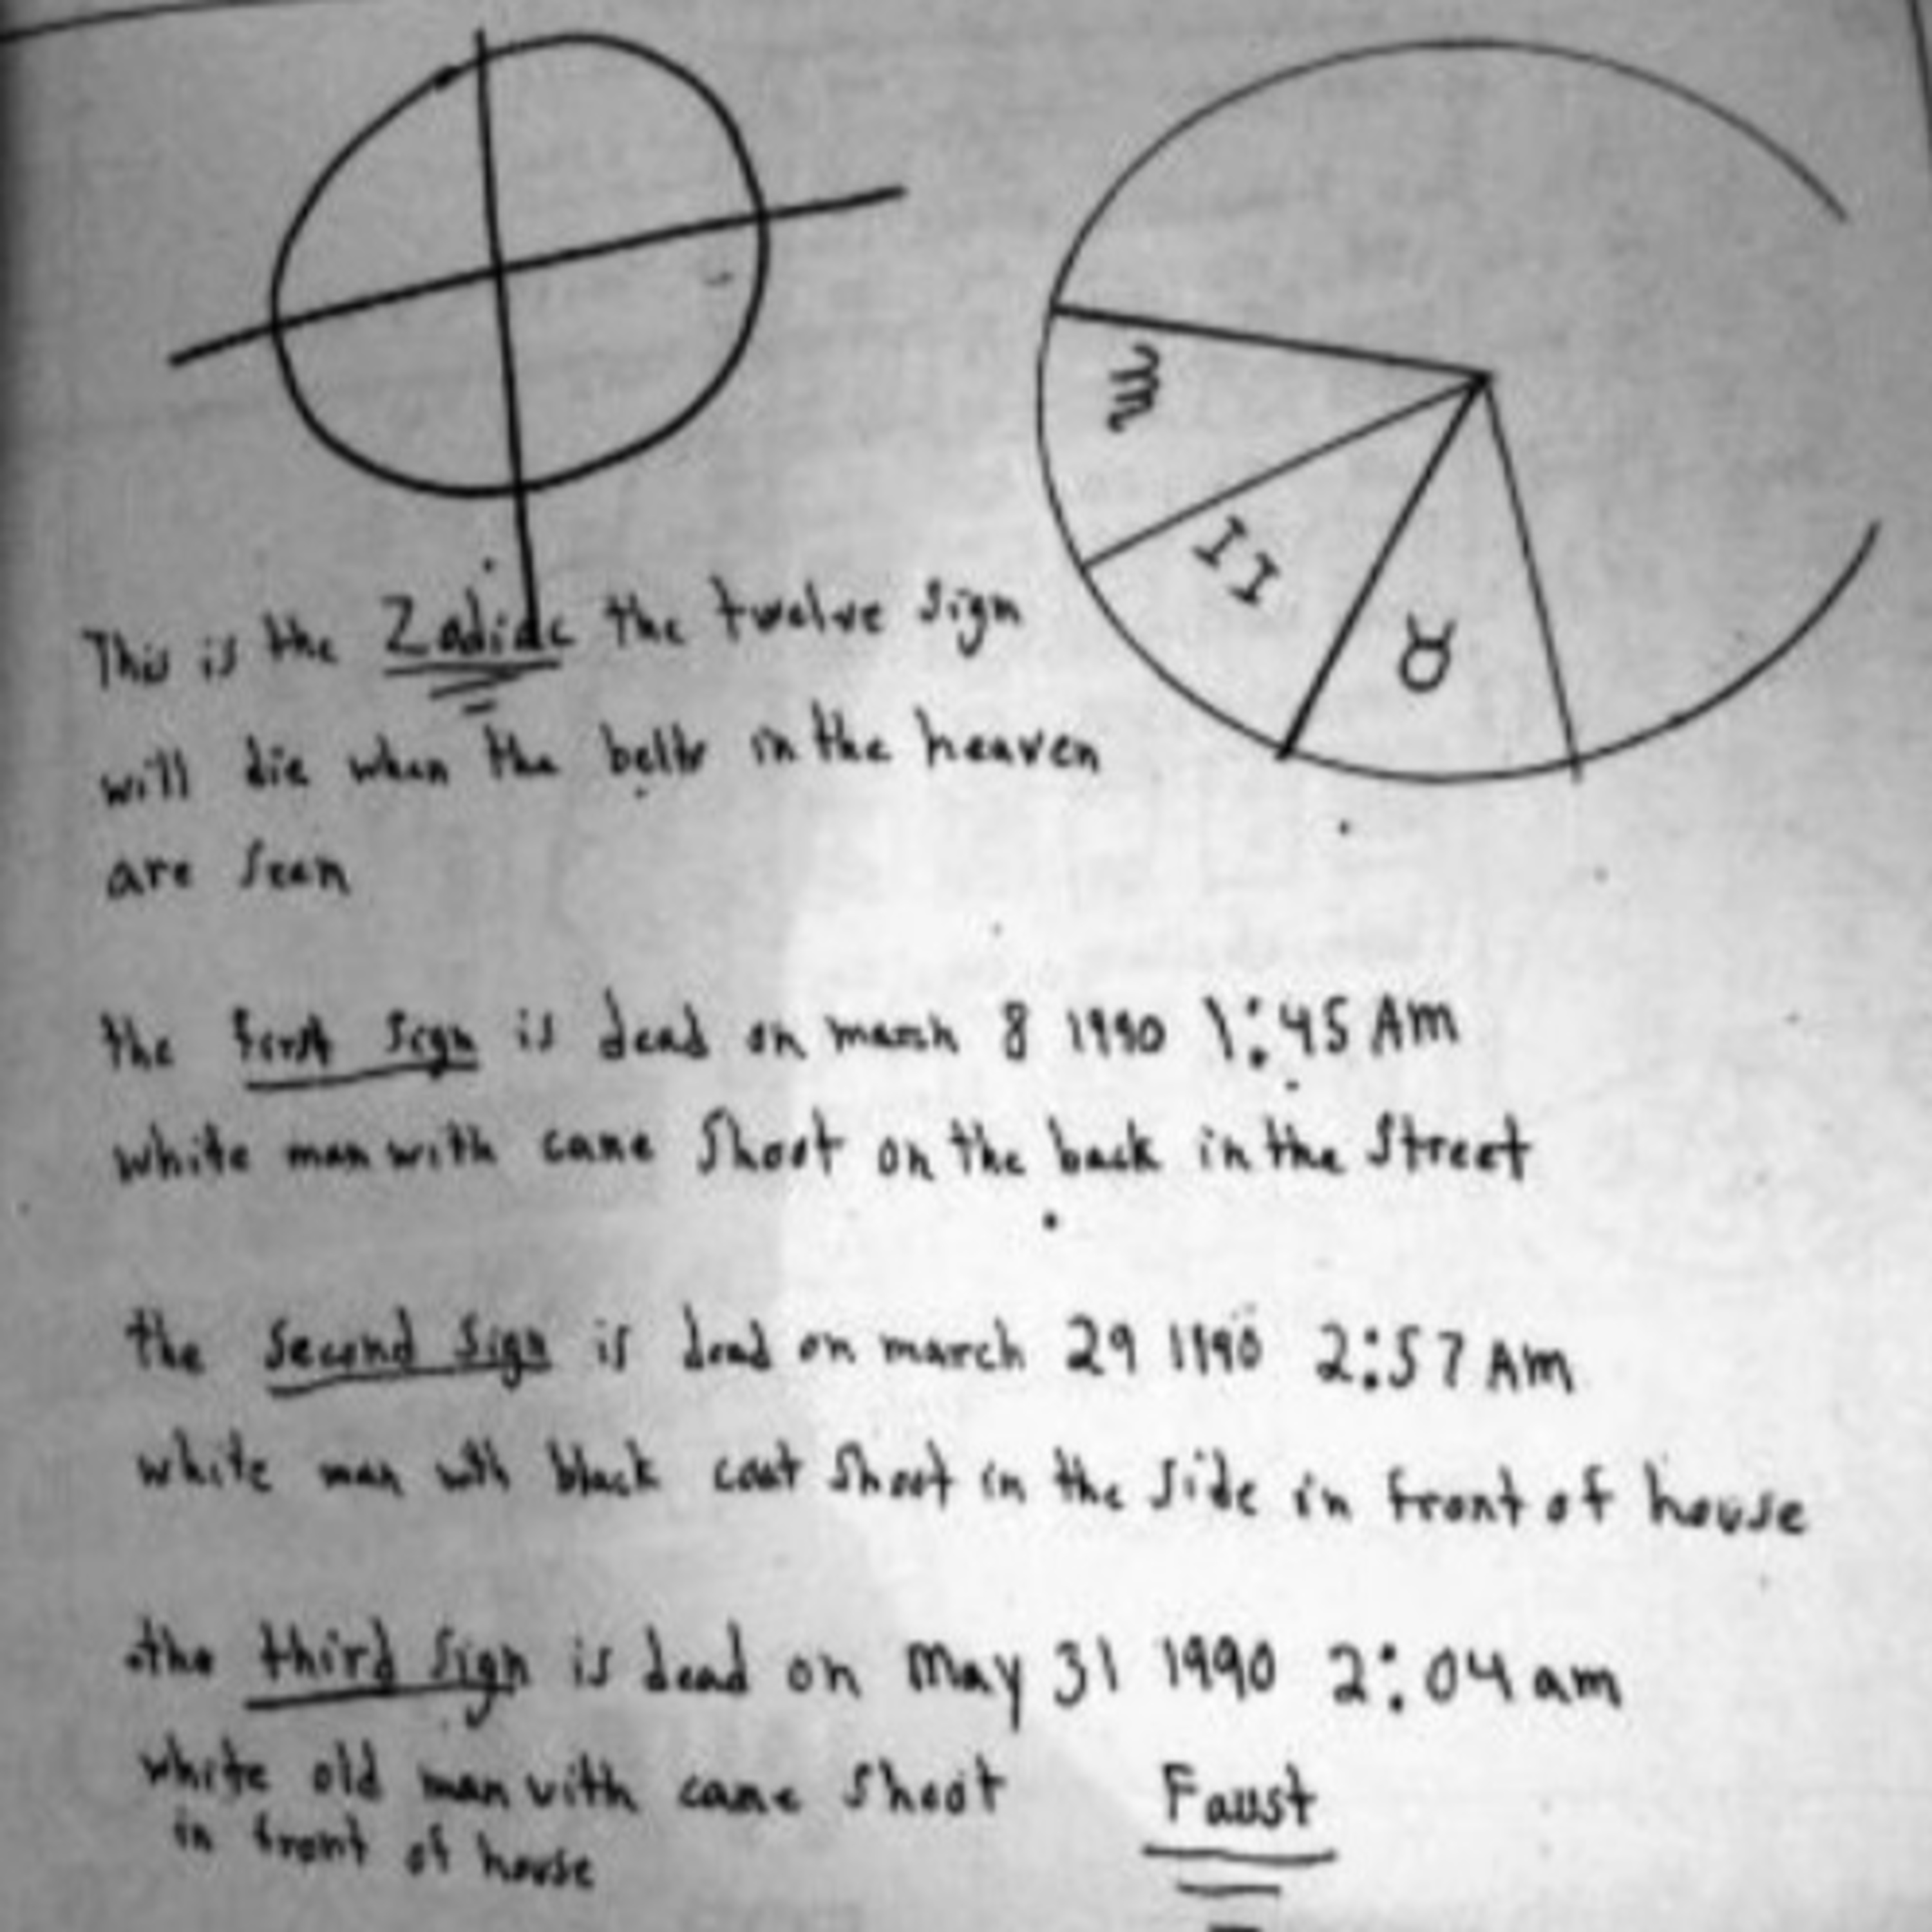 ♏
II
♉
This is the Zodiac the twelve sign
will die when the belts in the heaven
are seen
the first sign is dead on march 8 1990 1:45 AM
white man with cane shoot on the back in the street
the second sign is dead on march 29 1990 2:57 AM
white man with black coat shoot in the side in front of house
the third sign is dead on May 31 1990 2:04 am
white old man with cane shoot
in front of house
Faust